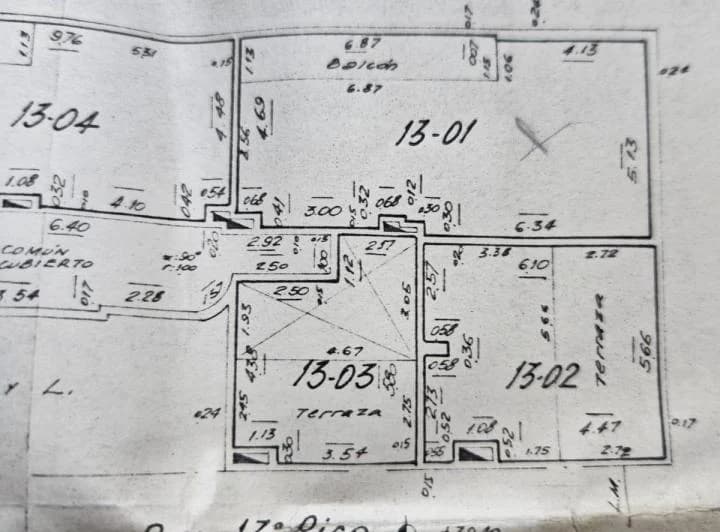 9.76
5.31
0.15
1.13
13-04
4.48
1.08
0.32
4.10
0.42
0.54
6.87
Balcón
6.87
1.13
4.13
1.06
0.24
4.69
13-01
5.13
0.68
0.41
3.00
0.15
0.32
0.68
0.12
0.30
0.30
6.34
6.40
COMÚN
CUBIERTO
0.20
2.92
2.50
3.54
0.17
2.28
2.17
1.12
0.15
2.50
1.93
3.05
4.67
4.38
13-03
2.45
Terraza
2.75
0.15
1.13
0.30
3.54
0.24
y L.
3.38
6.10
2.72
2.57
0.58
0.58
0.36
5.66
Terraza
5.66
13-02
2.13
0.52
1.08
0.52
1.75
4.47
2.72
0.17
0.15
L.M.